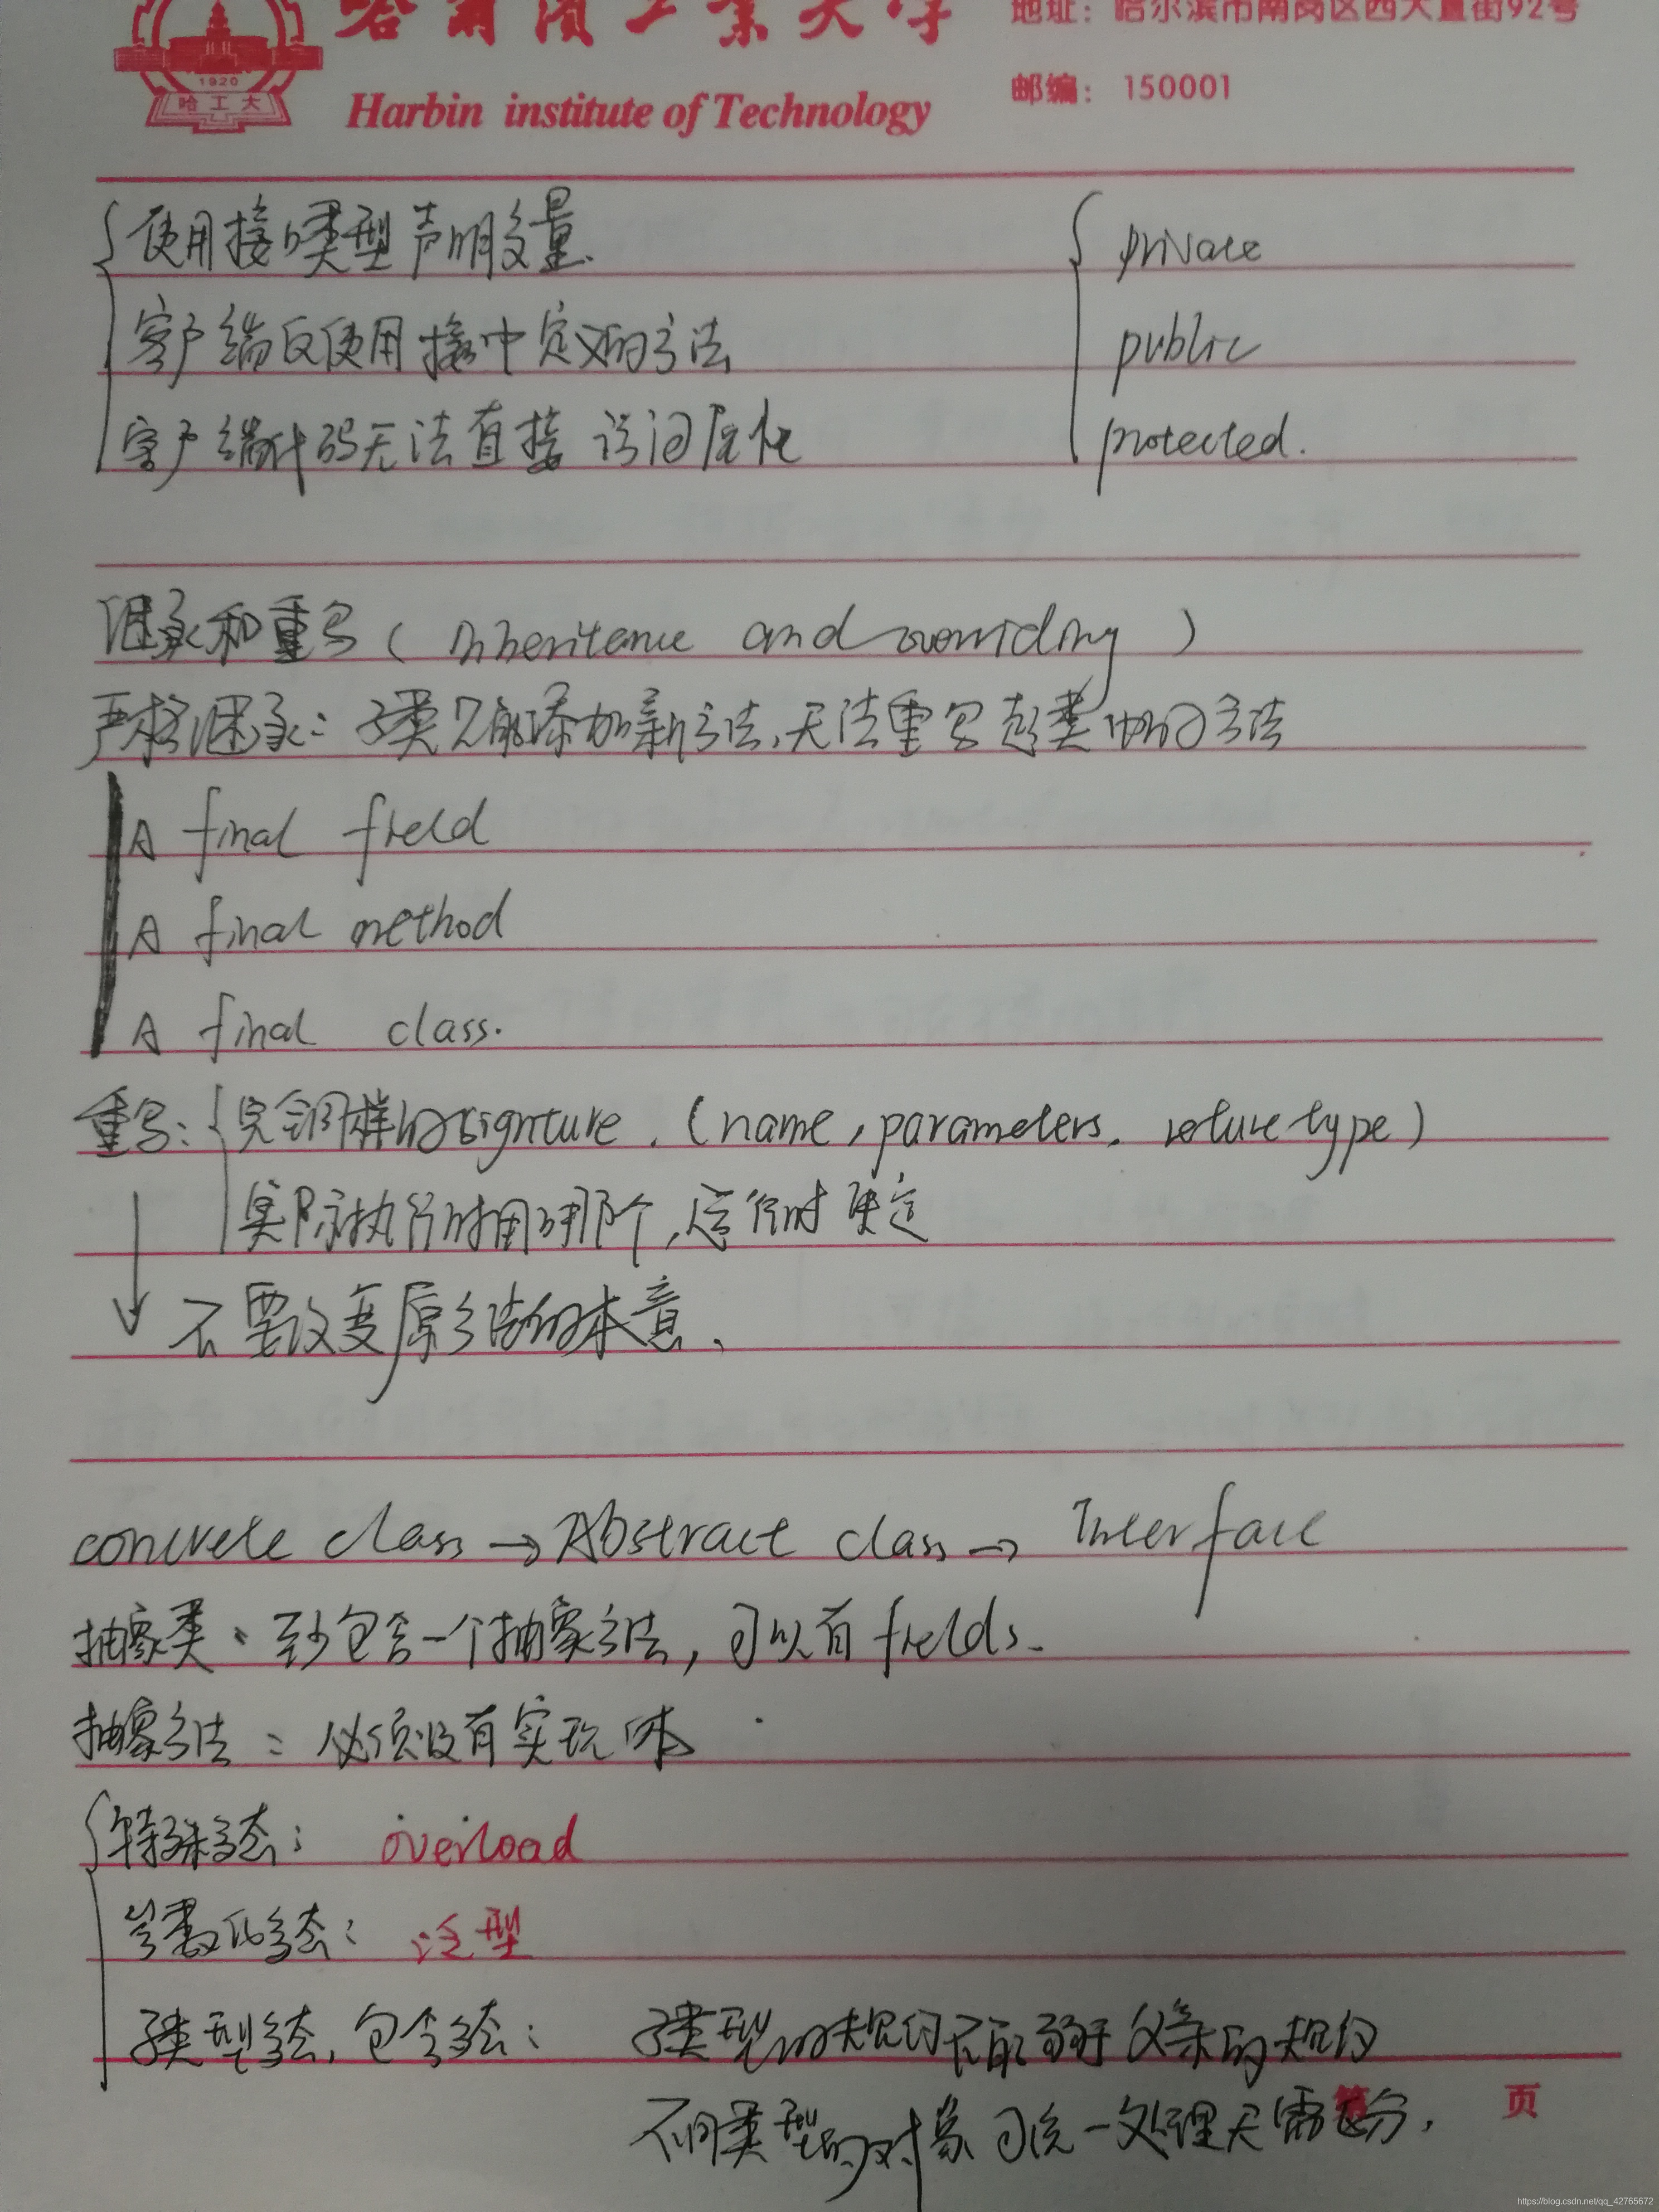 哈尔滨工业大学 地址：哈尔滨市南岗区西大直街92号
1920
哈工大
Harbin institute of Technology 邮编：150001
使用接口类型声明变量. private
客户端仅使用接口中定义的方法 public
客户端代码无法直接访问属性 protected.
继承和重写 ( Inheritence and overriding )
严格继承：子类只能添加新方法,无法重写超类中的方法
A final field
A final method
A final class.
重写：完全同样的signture. (name, parameters, reture type)
实际执行时调用那个,运行时决定
↓ 不要改变原方法的本意、
concrete class → Abstract class → Interface
抽象类：至少包含一个抽象方法, 可以有 fields.
抽象方法：必须没有实现体
特殊多态： overload
参数化多态： 泛型
子类型多态, 包含多态： 子类型的规约不能弱于父类的规约
不同类型的对象可统一处理无需区分.
第 页
https://blog.csdn.net/qq_42765672